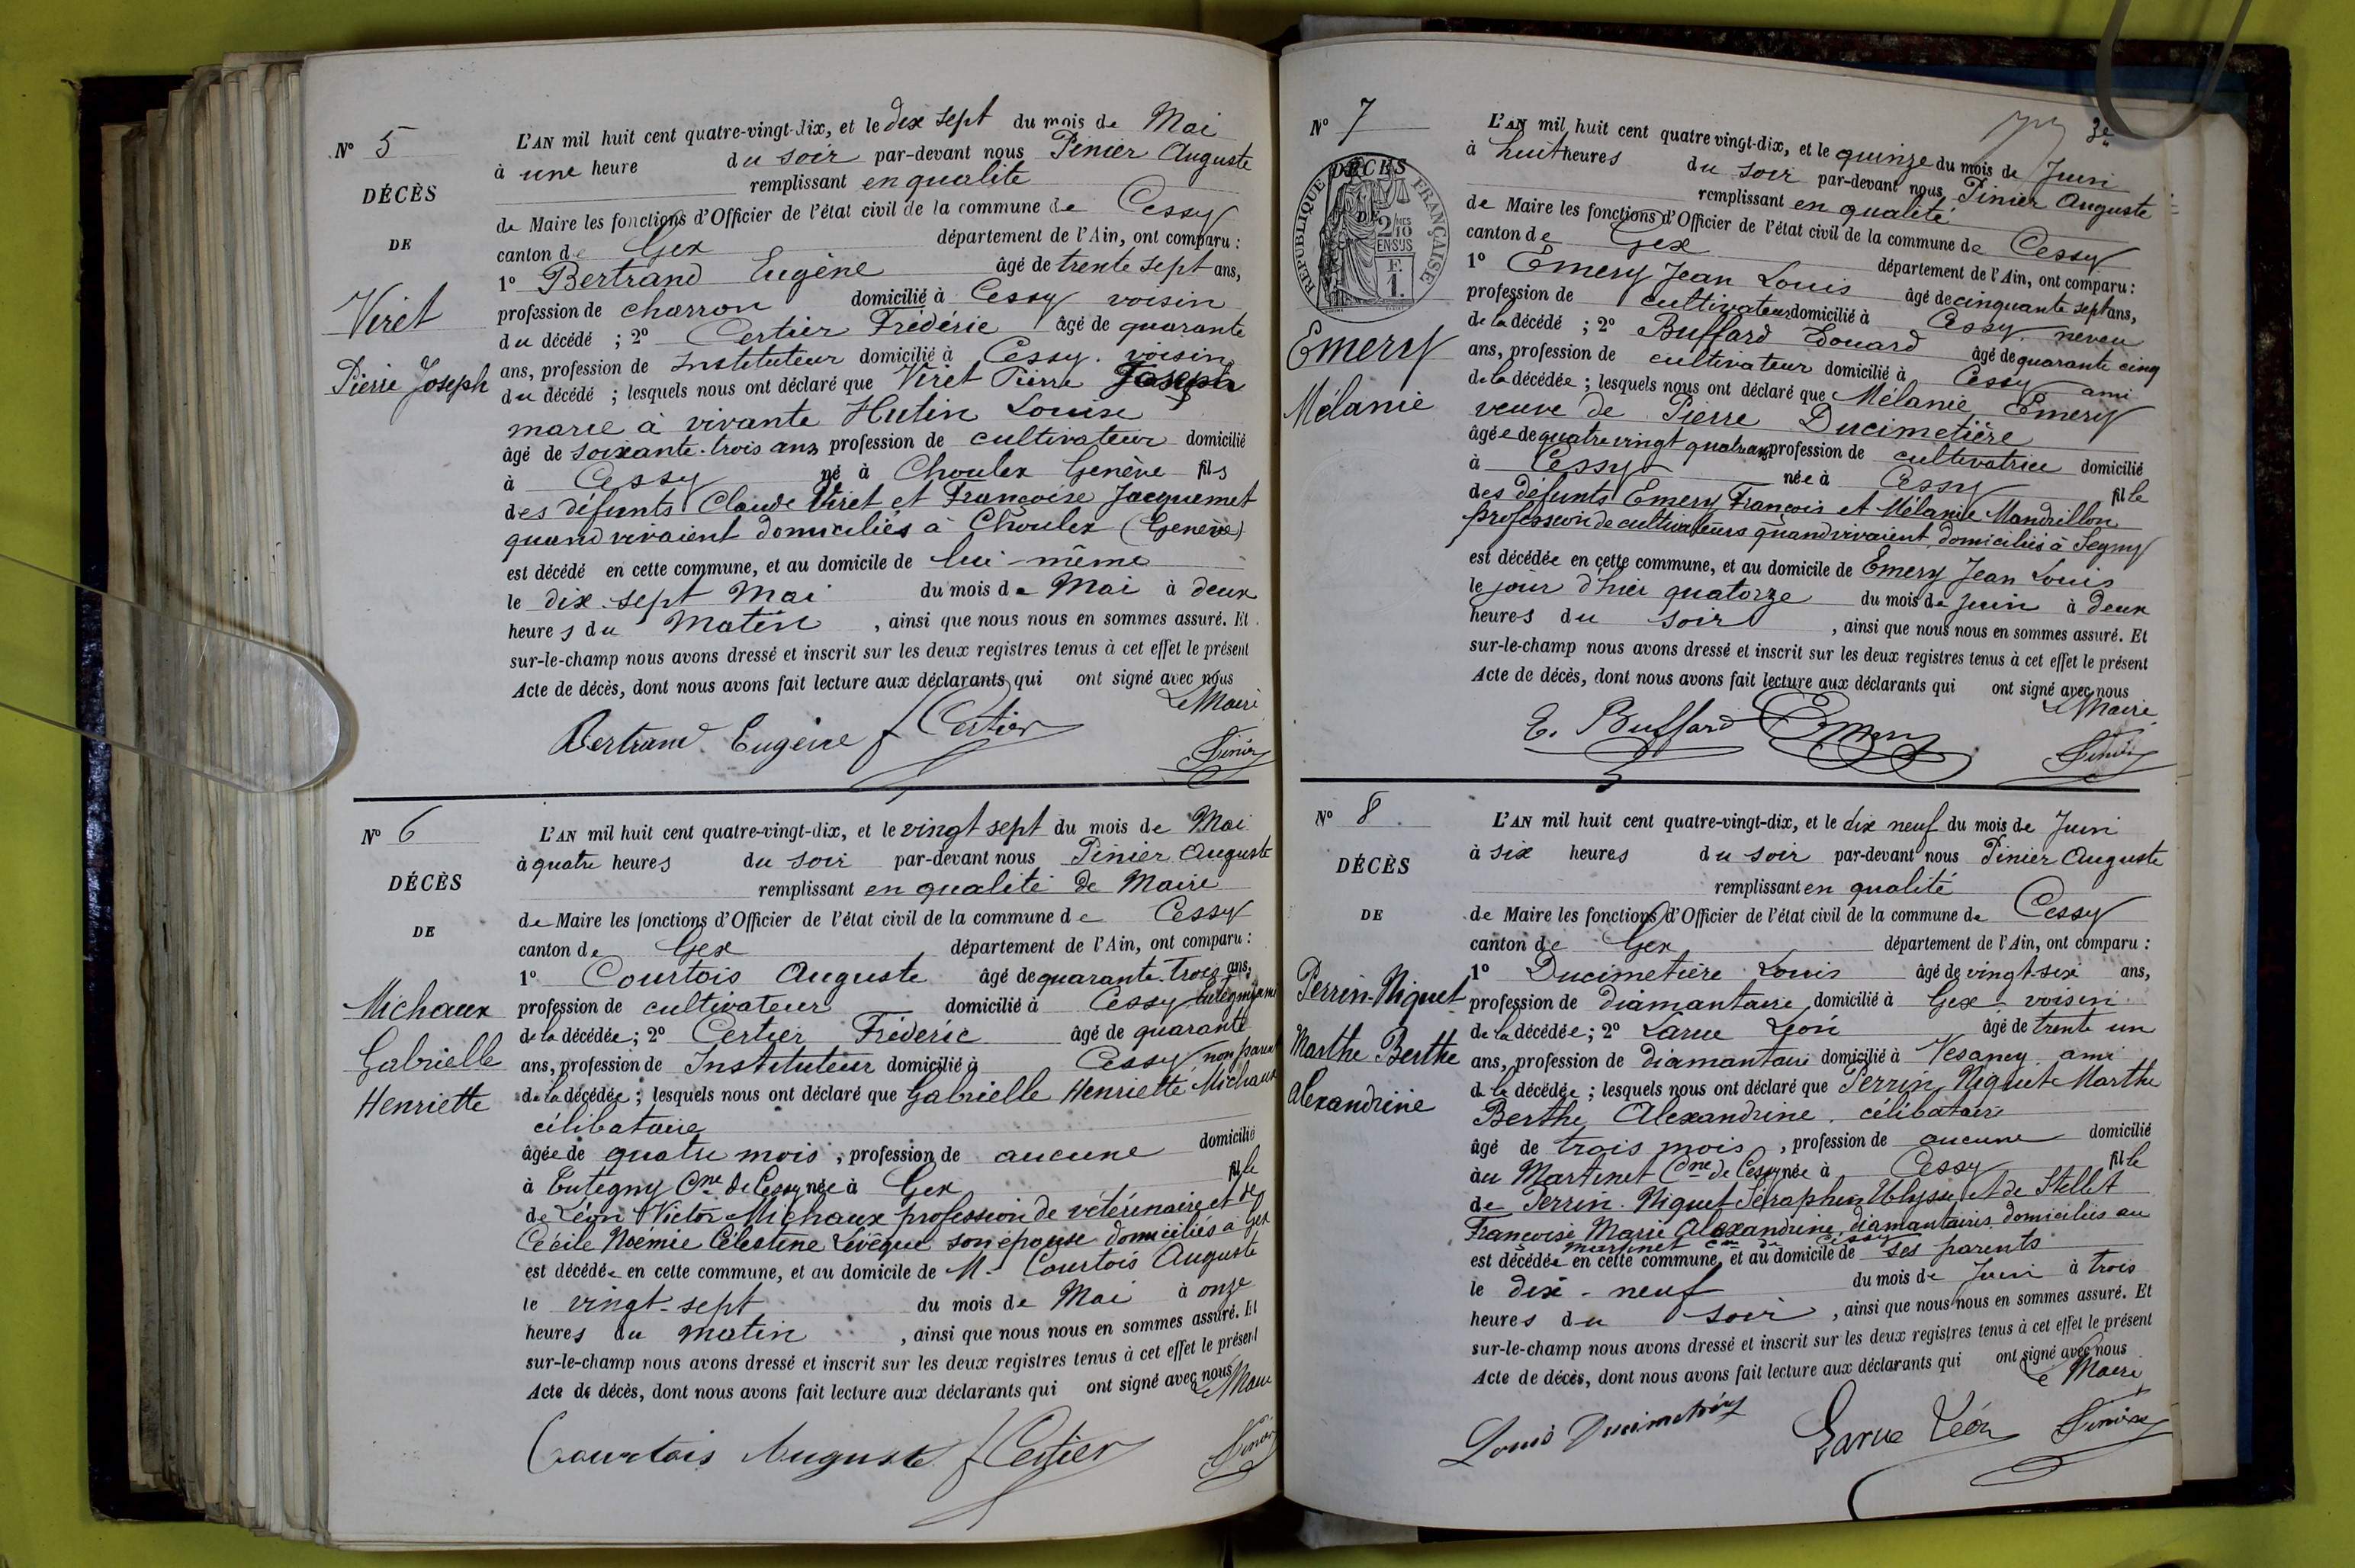 N° 5
DÉCÈS
DE
Viret
Pierre Joseph
L'AN mil huit cent quatre-vingt-dix, et le dix sept du mois de Mai
à une heure du soir par-devant nous Pinier Auguste
remplissant en qualité
de Maire les fonctions d'Officier de l'état civil de la commune de Cessy
canton de Gex département de l'Ain, ont comparu :
1° Bertrand Eugène âgé de trente sept ans,
profession de charron domicilié à Cessy voisin
du décédé ; 2° Certier Fréderic âgé de quarante
ans, profession de Instituteur domicilié à Cessy. voisin
du décédé ; lesquels nous ont déclaré que Viret Pierre Joseph
marié à vivante Hutin Louise
âgé de soixante-trois ans profession de cultivateur domicilié
à Cessy né à Choulex Genève fils
des défunts Claude Viret et Françoise Jacquemet
quand vivaient domiciliés à Choulex (Genève)
est décédé en cette commune, et au domicile de lui-même
le dix-sept Mai du mois de Mai à deux
heures du Matin , ainsi que nous nous en sommes assuré. Et
sur-le-champ nous avons dressé et inscrit sur les deux registres tenus à cet effet le présent
Acte de décès, dont nous avons fait lecture aux déclarants qui ont signé avec nous
Le Maire
Bertrand Eugène f Certier Pinier
N° 6
DÉCÈS
DE
Michaux
Gabrielle
Henriette
L'AN mil huit cent quatre-vingt-dix, et le vingt sept du mois de Mai
à quatre heures du soir par-devant nous Pinier Auguste
remplissant en qualité de Maire
de Maire les fonctions d'Officier de l'état civil de la commune de Cessy
canton de Gex département de l'Ain, ont comparu :
1° Courtois Auguste âgé de quarante-trois ans,
profession de cultivateur domicilié à Cessy Tutegny ami
de la décédée ; 2° Certier Fréderic âgé de quarante
ans, profession de Instituteur domicilié à Cessy non parent
de la décédée ; lesquels nous ont déclaré que Gabrielle Henriette Michaux
célibataire
âgée de quatre mois , profession de aucune domicilié
à Tutegny Cne de Cessy née à Gex fille
de Léon Victor Michaux profession de vétérinaire et de
Cécile Noemie Célestine Levêque son épouse domiciliés à Gex
est décédée en cette commune, et au domicile de Mr Courtois Auguste
le vingt-sept du mois de Mai à onze
heures du matin , ainsi que nous nous en sommes assuré. Et
sur-le-champ nous avons dressé et inscrit sur les deux registres tenus à cet effet le présent
Acte de décès, dont nous avons fait lecture aux déclarants qui ont signé avec nous
Le Maire
Courtois Auguste f Certier Pinier
3e
N° 7
DÉCÈS
DE
RÉPUBLIQUE FRANÇAISE
2/10 MES
EN SUS
F.
1.
Emery
Mélanie
L'AN mil huit cent quatre vingt-dix, et le quinze du mois de Juin
à huit heures du soir par-devant nous Pinier Auguste
remplissant en qualité
de Maire les fonctions d'Officier de l'état civil de la commune de Cessy
canton de Gex département de l'Ain, ont comparu :
1° Emery Jean Louis âgé de cinquante sept ans,
profession de cultivateur domicilié à Cessy neveu
de la décédé ; 2° Buffard Edouard âgé de quarante cinq
ans, profession de cultivateur domicilié à Cessy ami
de la décédée ; lesquels nous ont déclaré que Mélanie Emery
veuve de Pierre Ducimetière
âgée de quatre vingt quatre ans profession de cultivatrice domicilié
à Cessy née à Cessy fille
des défunts Emery François et Mélanie Mandrillon
profession de cultivateurs quand vivaient domiciliés à Segny
est décédée en cette commune, et au domicile de Emery Jean Louis
le jour d'hier quatorze du mois de juin à deux
heures du soir , ainsi que nous nous en sommes assuré. Et
sur-le-champ nous avons dressé et inscrit sur les deux registres tenus à cet effet le présent
Acte de décès, dont nous avons fait lecture aux déclarants qui ont signé avec nous
Le Maire
E. Buffard Emery Pinier
N° 8.
DÉCÈS
DE
Perrin-Niquet
Marthe Berthe
Alexandrine
L'AN mil huit cent quatre-vingt-dix, et le dix neuf du mois de Juin
à six heures du soir par-devant nous Pinier Auguste
remplissant en qualité
de Maire les fonctions d'Officier de l'état civil de la commune de Cessy
canton de Gex département de l'Ain, ont comparu :
1° Ducimetière Louis âgé de vingt-six ans,
profession de diamantaire domicilié à Gex - voisin
de la décédée ; 2° Larue Léon âgé de trente un
ans, profession de diamantaire domicilié à Vesancy ami
de la décédée ; lesquels nous ont déclaré que Perrin Niquet Marthe
Berthe Alexandrine. célibataire
âgé de trois mois , profession de aucune domicilié
au Martinet Cne de Cessy née à Cessy fille
de Perrin-Niquet Séraphin Ulysse et de Stellet
Françoise Marie Alexandrine diamantaires domiciliés au
martinet Cne de Cessy
est décédée en cette commune, et au domicile de ses parents
le dix-neuf du mois de Juin à trois
heures du soir , ainsi que nous nous en sommes assuré. Et
sur-le-champ nous avons dressé et inscrit sur les deux registres tenus à cet effet le présent
Acte de décès, dont nous avons fait lecture aux déclarants qui ont signé avec nous
Le Maire
Louis Ducimetière Larue Léon Pinier